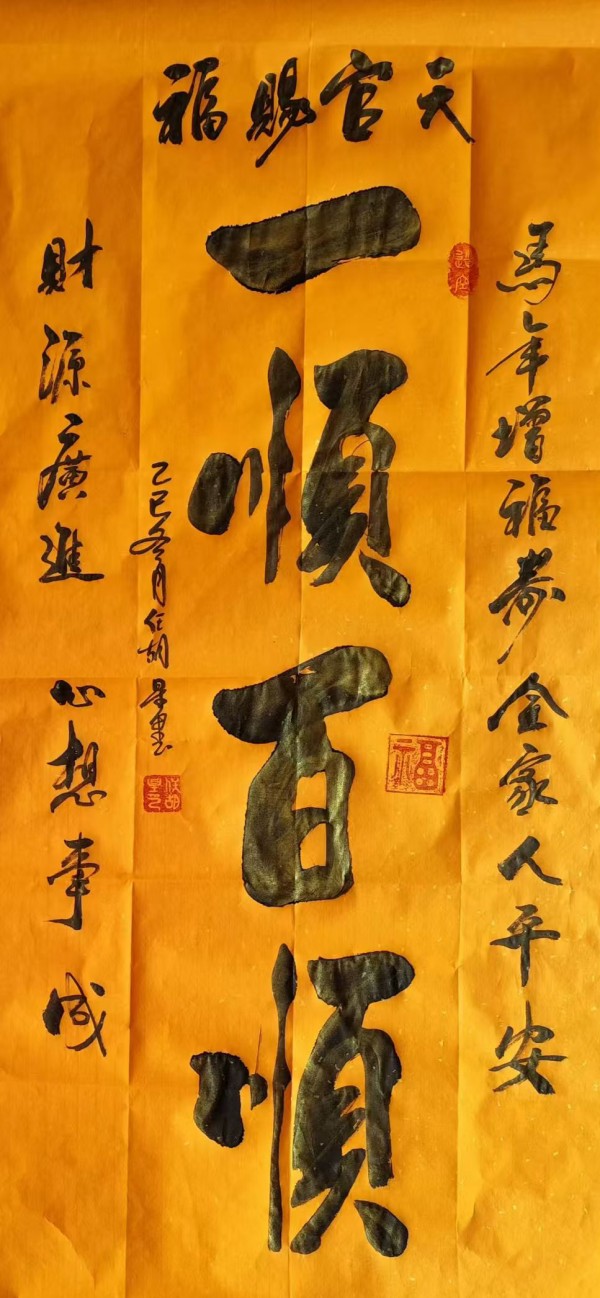 天官賜福
馬年增福壽全家人平安
一順百順
財源廣進 心想事成
乙巳冬月
福